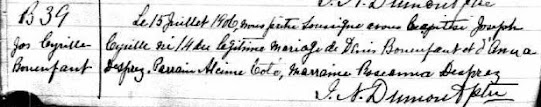 B 39
Jos Cyrille
Bonenfant
Le 15 Juillet 1906 nous prêtre soussigné avons baptisé Joseph
Cyrille né 14 du légitime mariage de Denis Bonenfant et d'Anna
Desprez. Parrain Alcime Coté, Marraine Roseanna Desprez
J. N. Dumont ptre